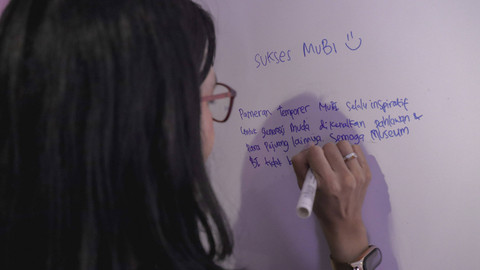 SUKSES MUBI
Pameran Temporer Mubi Selalu inspiratif
Untuk generasi muda dikenalkan pahlawan &
Para Pejuang lainnya. Semoga Museum
tidak